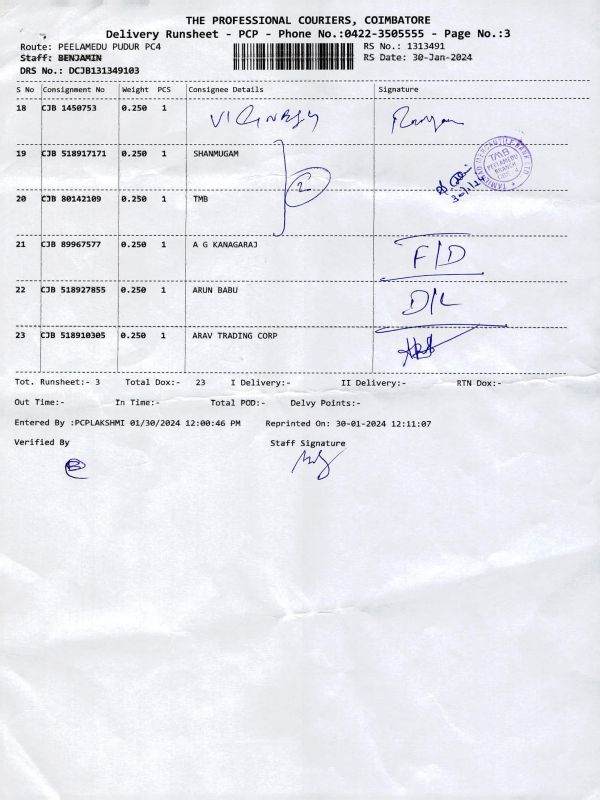 THE PROFESSIONAL COURIERS, COIMBATORE
Delivery Runsheet - PCP - Phone No.:0422-3505555 - Page No.:3
Route: PEELAMEDU PUDUR PC4 RS No.: 1313491
Staff: BENJAMIN RS Date: 30-Jan-2024
DRS No.: DCJB131349103
S No Consignment No Weight PCS Consignee Details Signature
18 CJB 1450753 0.250 1
19 CJB 518917171 0.250 1 SHANMUGAM
2
20 CJB 80142109 0.250 1 TMB
21 CJB 89967577 0.250 1 A G KANAGARAJ F/D
22 CJB 518927855 0.250 1 ARUN BABU D/L
23 CJB 518910305 0.250 1 ARAV TRADING CORP
Tot. Runsheet:- 3 Total Dox:- 23 I Delivery:- II Delivery:- RTN Dox:-
Out Time:- In Time:- Total POD:- Delvy Points:-
Entered By :PCPLAKSHMI 01/30/2024 12:00:46 PM Reprinted On: 30-01-2024 12:11:07
Verified By Staff Signature